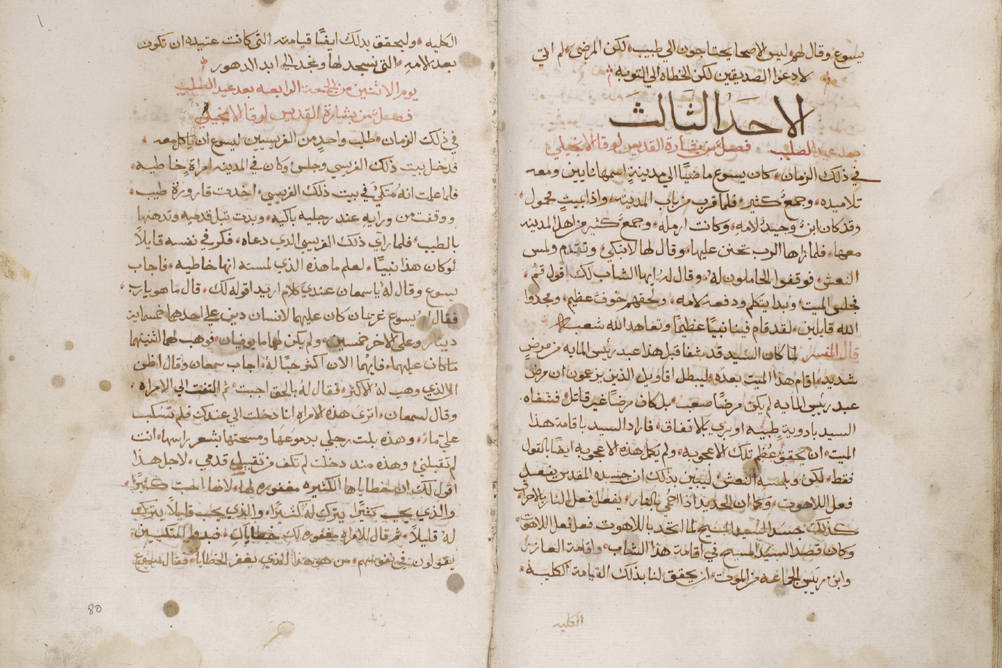 يسوع وقال لهم ليس الاصحا يحتاجون الي طبيب لكن المرضي لم اتي
لادعوا الصديقين لكن الخطاه الي التوبه
الاحد الثالث
بعد عيد الصليب فصل من بشارة القديس لوقا الانجيلي
في ذلك الزمان كان يسوع ماضيا الي مدينه اسمها نايين ومعه
تلاميذه وجمع كثير فلما قرب من باب المدينه واذا بميت محمول
وقد كان ابن وحيد لامه وكانت ارمله وجمع كثير من اهل المدينه
معها فلما راها الرب تحنن عليها وقال لها لا تبكي وتقدم ولمس
النعش فوقفوا الحاملون له وقال له يايها الشاب لك اقول قم
فجلس الميت وبدا يتكلم ودفعه لامه ولحقهم خوف عظيم ومجدوا
الله قايلين لقد قام فينا نبيا عظيما وتعاهد الله شعبه
قال المفسر لما كان السيد قد شفا قبل هذا عبد رئيس المايه من مرض
شديد اقام هذا الميت بعده ليبطل اقاويل الذين يزعمون ان مرض
عبد رئيس المايه لم يكن مرضا صعب بل كان مرضا غير قاتل فشفاه
السيد بادوية طبيه او بري بالاتفاق فاراد السيد باقامة هذا
الميت ان يحقق عظم تلك الاعجوبه ولم يكمل هذه الاعجوبه ايضا بالقول
فقط لكن وبلمسه النعش ليتبين بذلك ان جسده المقدس يفعل
فعل اللاهوت وكما ان الحديد اذا احمي بالنار يفعل فعل النار بالاحراق
كذلك جسد السيد المسيح لما اتحد باللاهوت فعل فعل اللاهوت
وكان قصد السيد المسيح في اقامة هذا الشاب واقامة العازر
وابن رئيس الجماعه من الموت ان يحقق لنا بذلك القيامة الكليه
الكليه
الكليه وليحقق بذلك ايضا قيامته التي كانت عتيده ان تكون
بعد لامه التي نسجد لها ونمجد الي ابد الدهور
يوم الاثنين من الجمعه الرابعه بعد عيد الصليب
فصل من بشارة القديس لوقا الانجيلي
في ذلك الزمان طلب واحد من الفريسيين ليسوع ان ياكل معه
فدخل بيت ذلك الفريسي وجلس وكان في المدينه امراة خاطيه
فلما علمت انه متكي في بيت ذلك الفريسي اخدت قارورة طيب
ووقفت من ورايه عند رجليه باكيه وبدت تبل قدميه وتدهنها
بالطيب فلما راي ذلك الفريسي الذي دعاه فكر في نفسه قايلا
لو كان هذا نبيا لعلم ما هذه الذي لمسته انها خاطيه فاجاب
يسوع وقال له ياسمعان عندي كلام اريد اقوله لك قال ما هو يارب
فقال يسوع غريمان كان عليهما لانسان دين علي احدهما خمسمايه
دينار وعلي الاخر خمسين ولم يكن لهما ما يوفيان فوهب لهما اثنيهما
ما كان عليهما فايهما الان اكثر حبا له اجاب سمعان وقال اظن
الا الذي وهب له الاكثر فقال له بالحق اجبت ثم التفت الي الامراه
وقال لسمعان اتري هذه الامراه انا دخلت الي عندك فلم تسكب
علي ماء وهذه بلت رجلي بدموعها ومسحتها بشعر راسها انت
لم تقبلني وهذه منذ دخلت لم تكف من تقبيل قدمي لاجل هذا
اقول لك ان خطاياها الكثيره مغفوره لها لانها احبت كثيرا
والذي يحب كثيرا يترك له كثيرا والذي يحب قليلا يترك
له قليلا ثم قال للامراه مغفوره لك خطاياك فبدوا المتكيين
يقولون في نفوسهم من هو هذا الذي يغفر الخطايا فقال يسوع
80